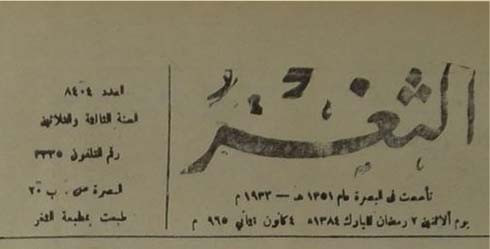 الثغر
تأسست في البصرة عام ١٣٥١ هـ — ١٩٣٣ م
يوم الاثنين ٢ رمضان المبارك ١٣٨٤ هـ ٤ كانون ثاني ٩٦٥ م
العدد ٨٤٠٤
السنة الثالثة والثلاثين
رقم التلفون ٣٣٣٥
البصرة ص . ب ٢٠
طبعت بمطبعة الثغر